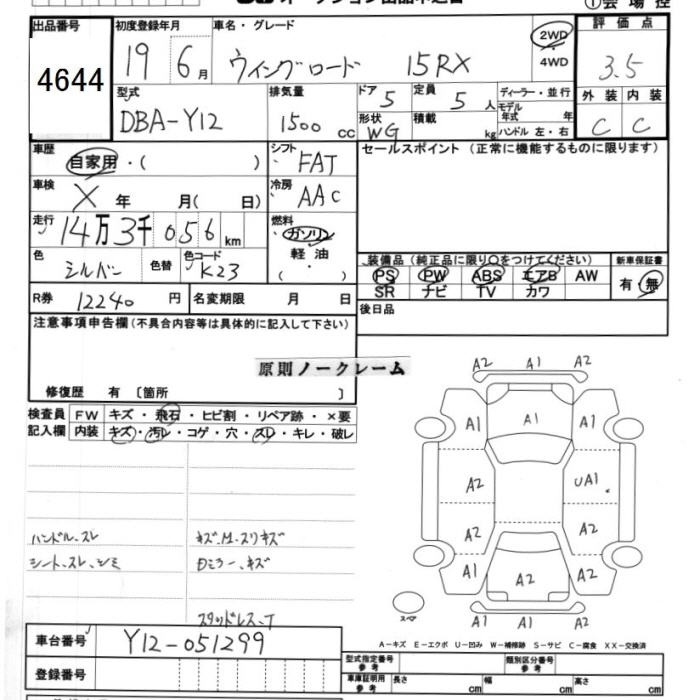 出品番号 4644
初度登録年月 19 6月
車名・グレード ウイングロード 15RX
2WD
4WD
評価点 3.5
型式 DBA-Y12
排気量 1500 cc
ドア 5
形状 WG
定員 5人
積載 kg
ディーラー・並行
モデル年式 年
ハンドル 左・右
外装 内装
C C
車歴 自家用・( )
シフト FAT
セールスポイント (正常に機能するものに限ります)
車検 X 年 月( 日)
冷房 AAC
走行 14万3千056km
燃料 ガソリン・軽油・( )
色 シルバー 色替 色コード K23
装備品 (純正品に限り○をつけてください) 新車保証書
PS PW ABS エアB AW 有・無
SR ナビ TV カワ
R券 12240 円 名変期限 月 日
後日品
注意事項申告欄(不具合内容等は具体的に記入して下さい)
原則ノークレーム
修復歴 有 〔箇所 〕
検査員 FW キズ・飛石・ヒビ割・リペア跡・×要
記入欄 内装 キズ・汚レ・コゲ・穴・スレ・キレ・破レ
A2 A1 A2
A1 A1 A1
A2 UA1
A2 A2
A1 A2 A1
A2 A1 A2
スペア
ハンドル.スレ
シート.スレ.シミ
キズ.M.スリキズ
Dミラー.キズ
スタッドレス-T
A-キズ E-エクボ U-凹み W-補修跡 S-サビ C-腐食 XX-交換済
車台番号 Y12-051299
登録番号
型式指定番号参考 類別区分番号参考
車庫証明用参考 長さ cm 幅 cm 高さ cm